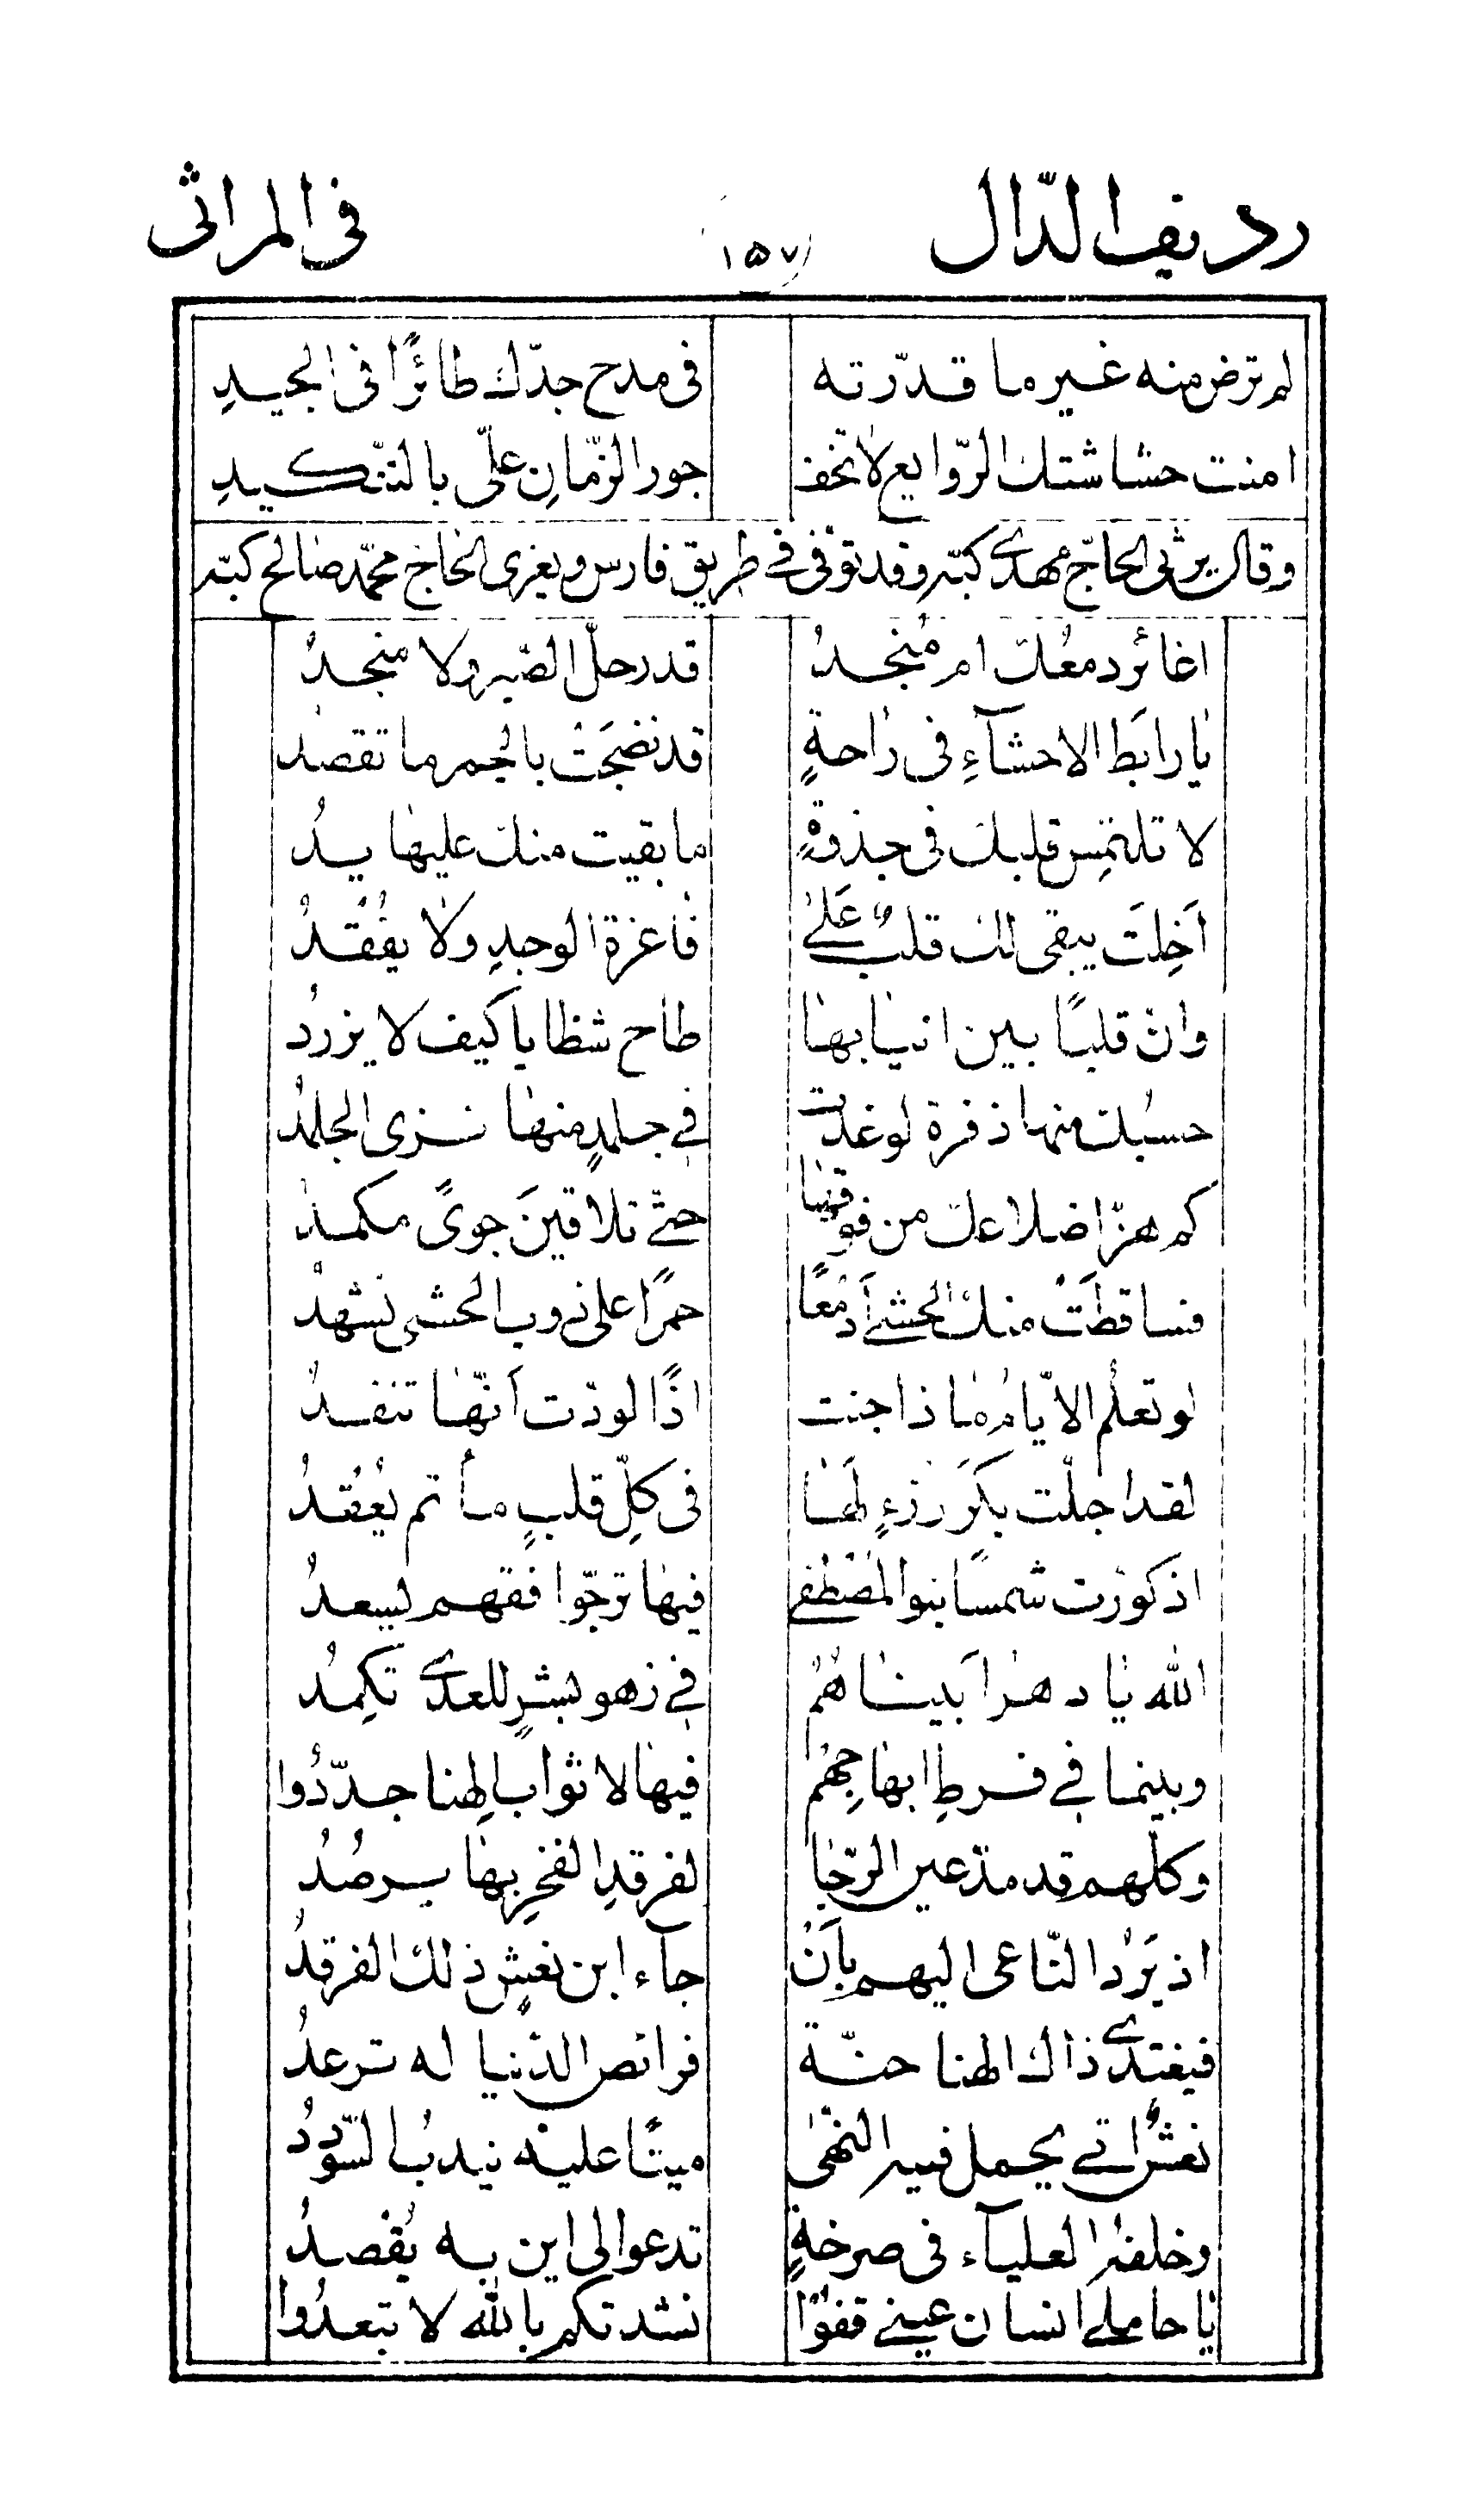 رديف الدّال ١٥٧ فى المراثى
لم ترض منه غير ما قدّرته فى مدح جدّك طائرًا فى الجيدِ
امنت حشاشتك الرّوايع لا تخف جور الزّمانِ علىّ بالتنكيدِ
وقال يرثى الحاجّ مهدى كبّه وقد توفى فى طريق فارس ويعزى الحاج محمّد صالح كبّه
اغائر دمعُك ام مُنجدُ قد رحل الصّبر ولا منجدُ
يا رابَط الاحشآءِ فى راحةٍ قد نضجَت بالجمر ما تقصد
لا تلتمِس قلبك فى جذوةٍ ما بقيت منك عليها يدُ
اَخِلتَ يبقى لك قلبٌ عَلىٰ فاغرة الوجدِ ولا يفُقَدُ
وان قلبًا بين انيابها طاح شظايا كيف لا يزردُ
حسبُك منها زفرة لو غدت فى جلمدٍ منها نزى الجلمدُ
كم هزّ اضلاعك من فوقها حتّى تلاقينَ جوىً مكمد
فساقطَت منك الحشىٰ اَدمُعًا حمرًا على ذوب الحشى تشهدُ
لو تعلم الايّامُ ماذا جنت اذًا لودّت اَنّها تنفدُ
لقد اجلّت بكرَ رزءٍ لَها فى كلِّ قلبٍ مأتم يُعُقدُ
اذ كورّت شمسًا بنو المصطفى فيها ترجّوا فقهم يسعدُ
الله يا دهرا بَينا هُمُ فى زهو بشرٍ للعدى تكِمدُ
وبينما فى فرطِ ابهاجِهِمُ فيها لاثواب الهنا جدّدُوا
وكلهم قد مدّ عين الرّجا لفرقدِ الفخرِ بها يرصُدُ
اذ بَرَدَ النّاعى اليهم بأَنْ جآء ابن نعشٍ ذلك الفرقدُ
فيغتدى ذاك الهنا حنّة فرائص الدّنيا له ترعدُ
نعشٌ اتى يحمل فيه النّهىٰ ميتًا عليه يندبُ السّوددُ
وخلفه العليآء فى صرخةٍ تدعوا الى اين به يُقصدُ
يا حاملى انسان عينى قفوًا نشدتكم بالله لا تبعدُوا